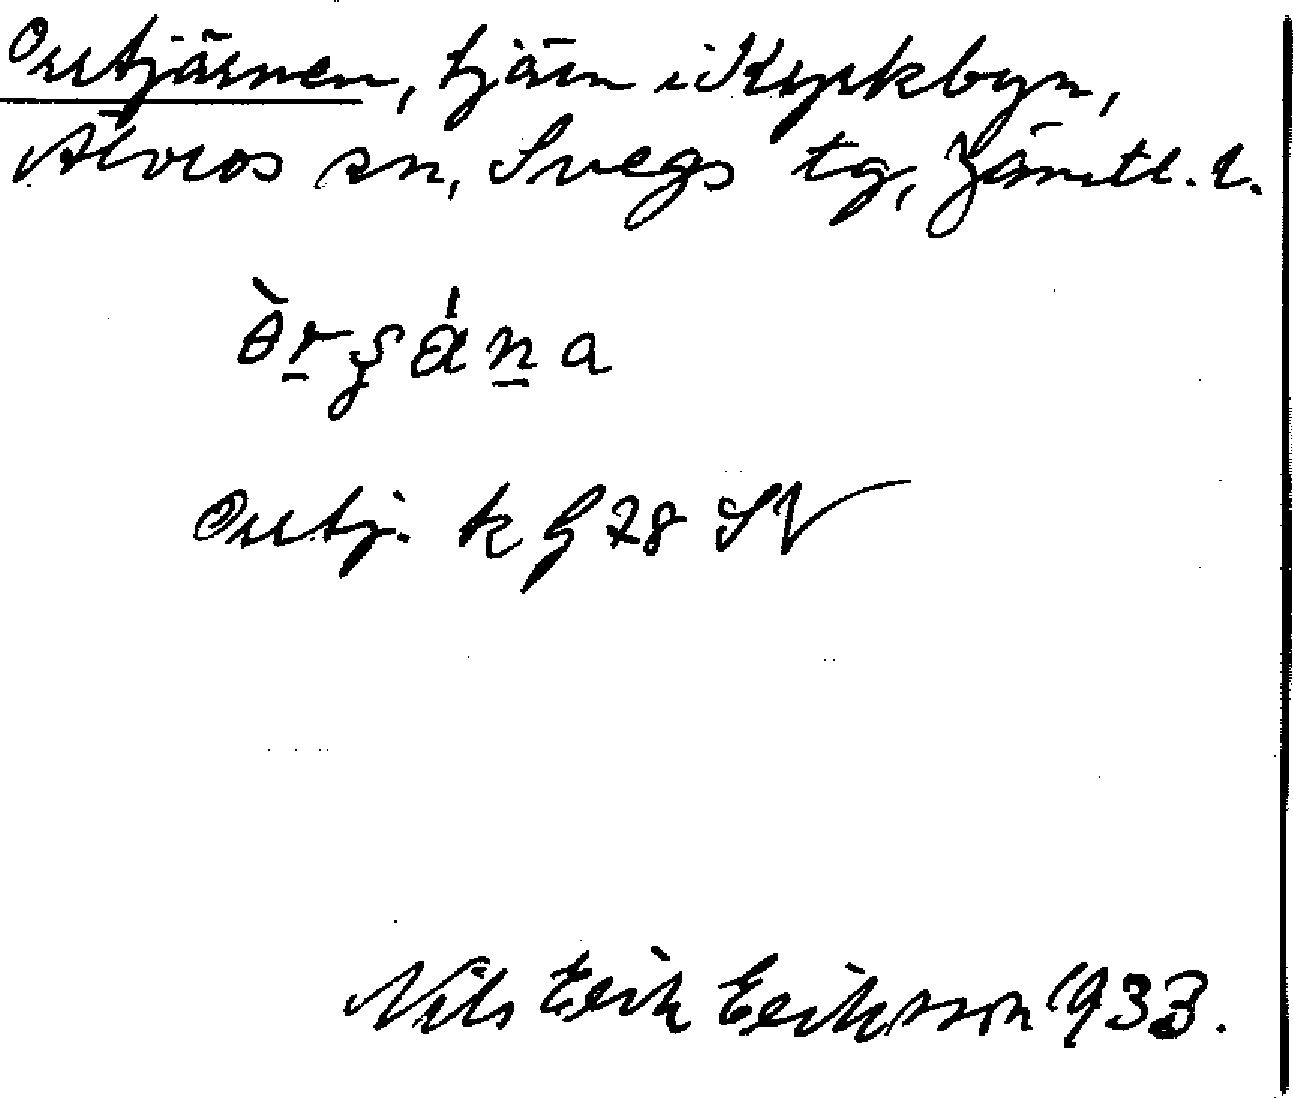 Orrtjärnen, tjärn i Kyrkbyn,
Älvros sn, Svegs tg, Jämtl. l.
Orrtj. k G 28 SV
Nils Erik Eriksson 1933.